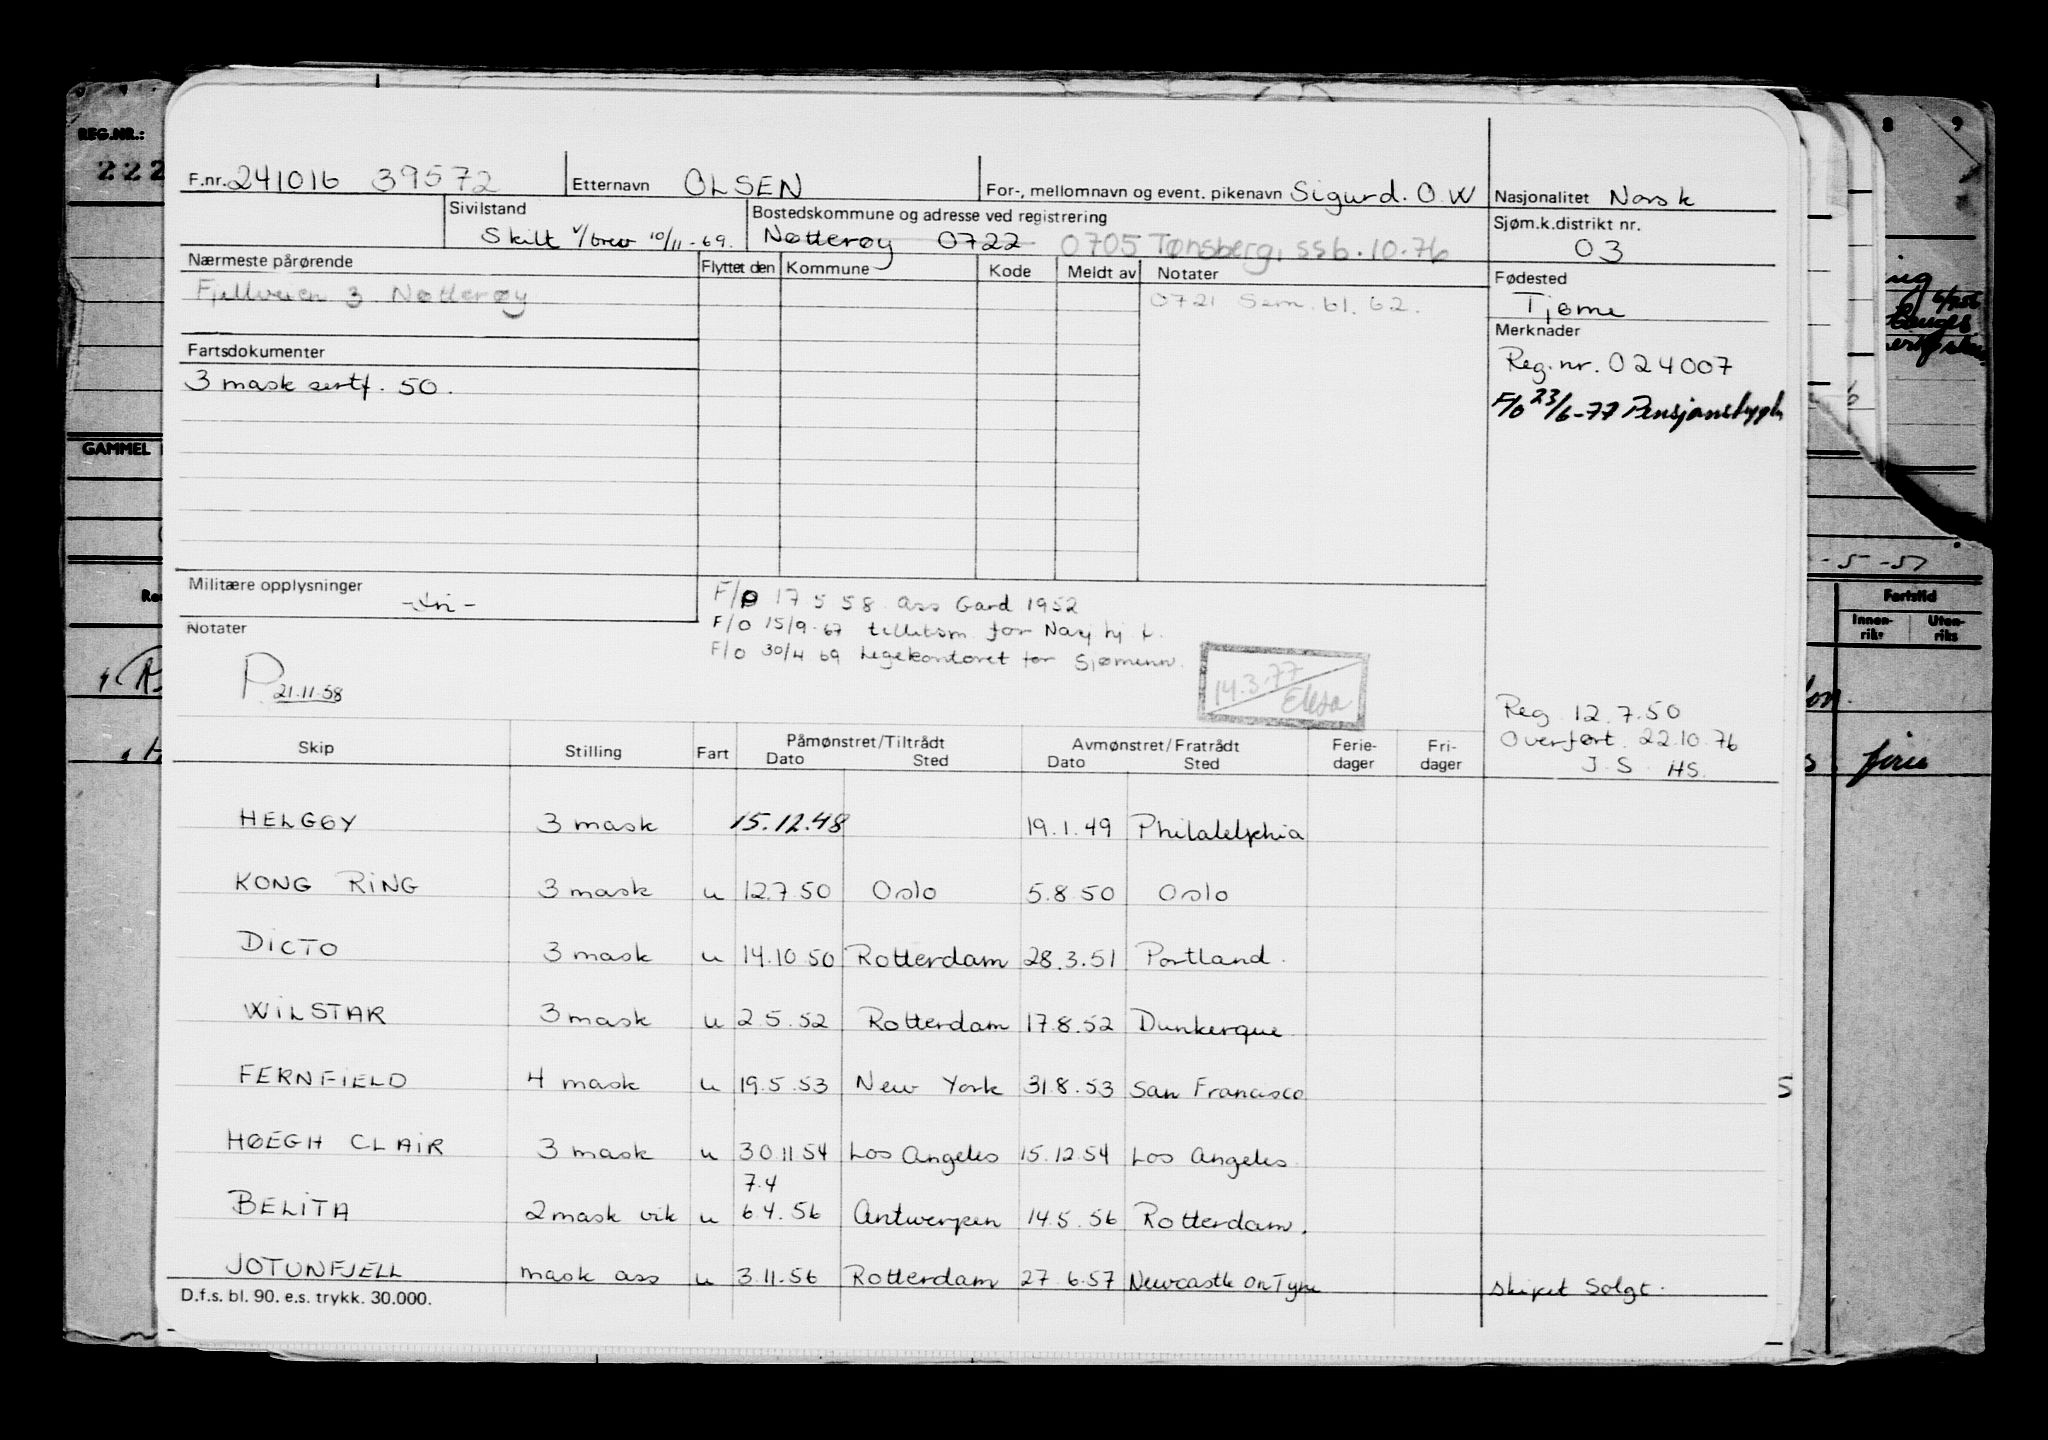 REG.NR.:
222
8 9
F.nr. 241016 39572 Etternavn OLSEN For-, mellomnavn og event. pikenavn Sigurd. O W Nasjonalitet Norsk
Sivilstand Skilt v/brev 10/11-69. Bostedskommune og adresse ved registrering Nøtterøy 0722 0705 Tønsberg, ssb. 10-76 Sjøm.k.distrikt nr. 03
Nærmeste pårørende Flyttet den Kommune Kode Meldt av Notater Fødested
Fjellveien 3 Nøtterøy 0721 Sem. bl. 62. Tjøme
Merknader
Fartsdokumenter Reg.nr. 024007
3 mask sertf. 50. F/O 23/6-77 Pensjonstrygden
GAMMEL
-5-57
Militære opplysninger
Fartstid
Innen-riks Uten-riks
F/O 17 5 58 ass Gard 1952
Notater F/O 15/9-67 tillitsm. for Navj hj t.
F/O 30/4 69 Legekontoret for Sjømenn.
P. 21.11.58
14.3.77
Reg 12.7.50
Overført 22.10.76
J.S. HS.
Skip Stilling Fart Påmønstret/Tiltrådt Dato Sted Avmønstret/Fratrådt Dato Sted Ferie-dager Fri-dager
HELGØY 3 mask 15.12.48 19.1.49 Philalelphia
KONG RING 3 mask u 12.7.50 Oslo 5.8.50 Oslo
DICTO 3 mask u 14.10.50 Rotterdam 28.3.51 Portland.
WILSTAR 3 mask u 2.5.52 Rotterdam 17.8.52 Dunkerque
FERNFIELD 4 mask u 19.5.53 New York 31.8.53 San Francisco
HØEGH CLAIR 3 mask u 30.11.54 Los Angeles 15.12.54 Los Angeles
7.4
BELITA 2 mask vik u 6.4.56 Antwerpen 14.5.56 Rotterdam.
JOTUNFJELL mask ass u 3.11.56 Rotterdam 27.6.57 Newcastle on Tyne skipet solgt.
D.f.s. bl. 90. e.s. trykk. 30.000.